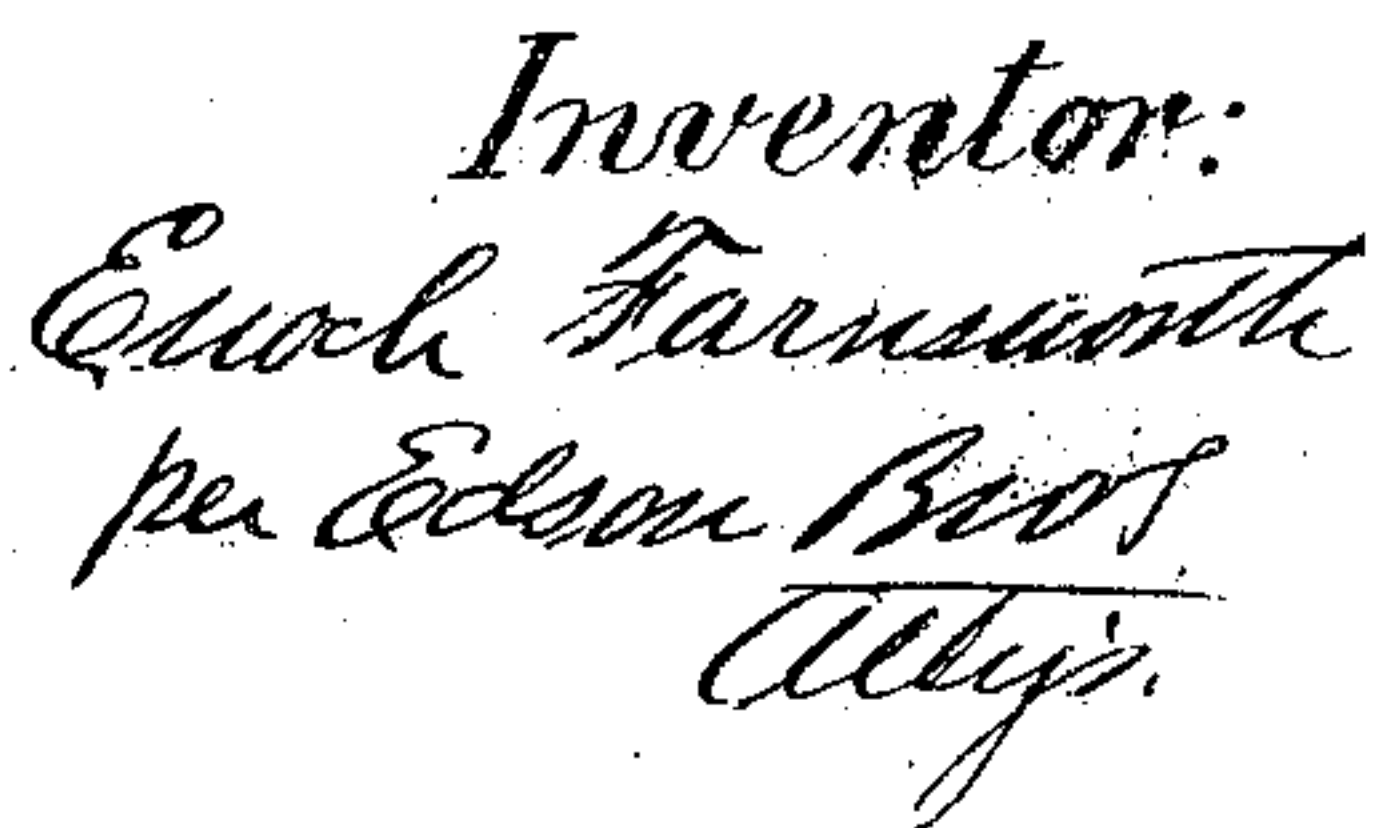 Inventor:
Enoch Farnsworth
per Edson Bros
Atty's.